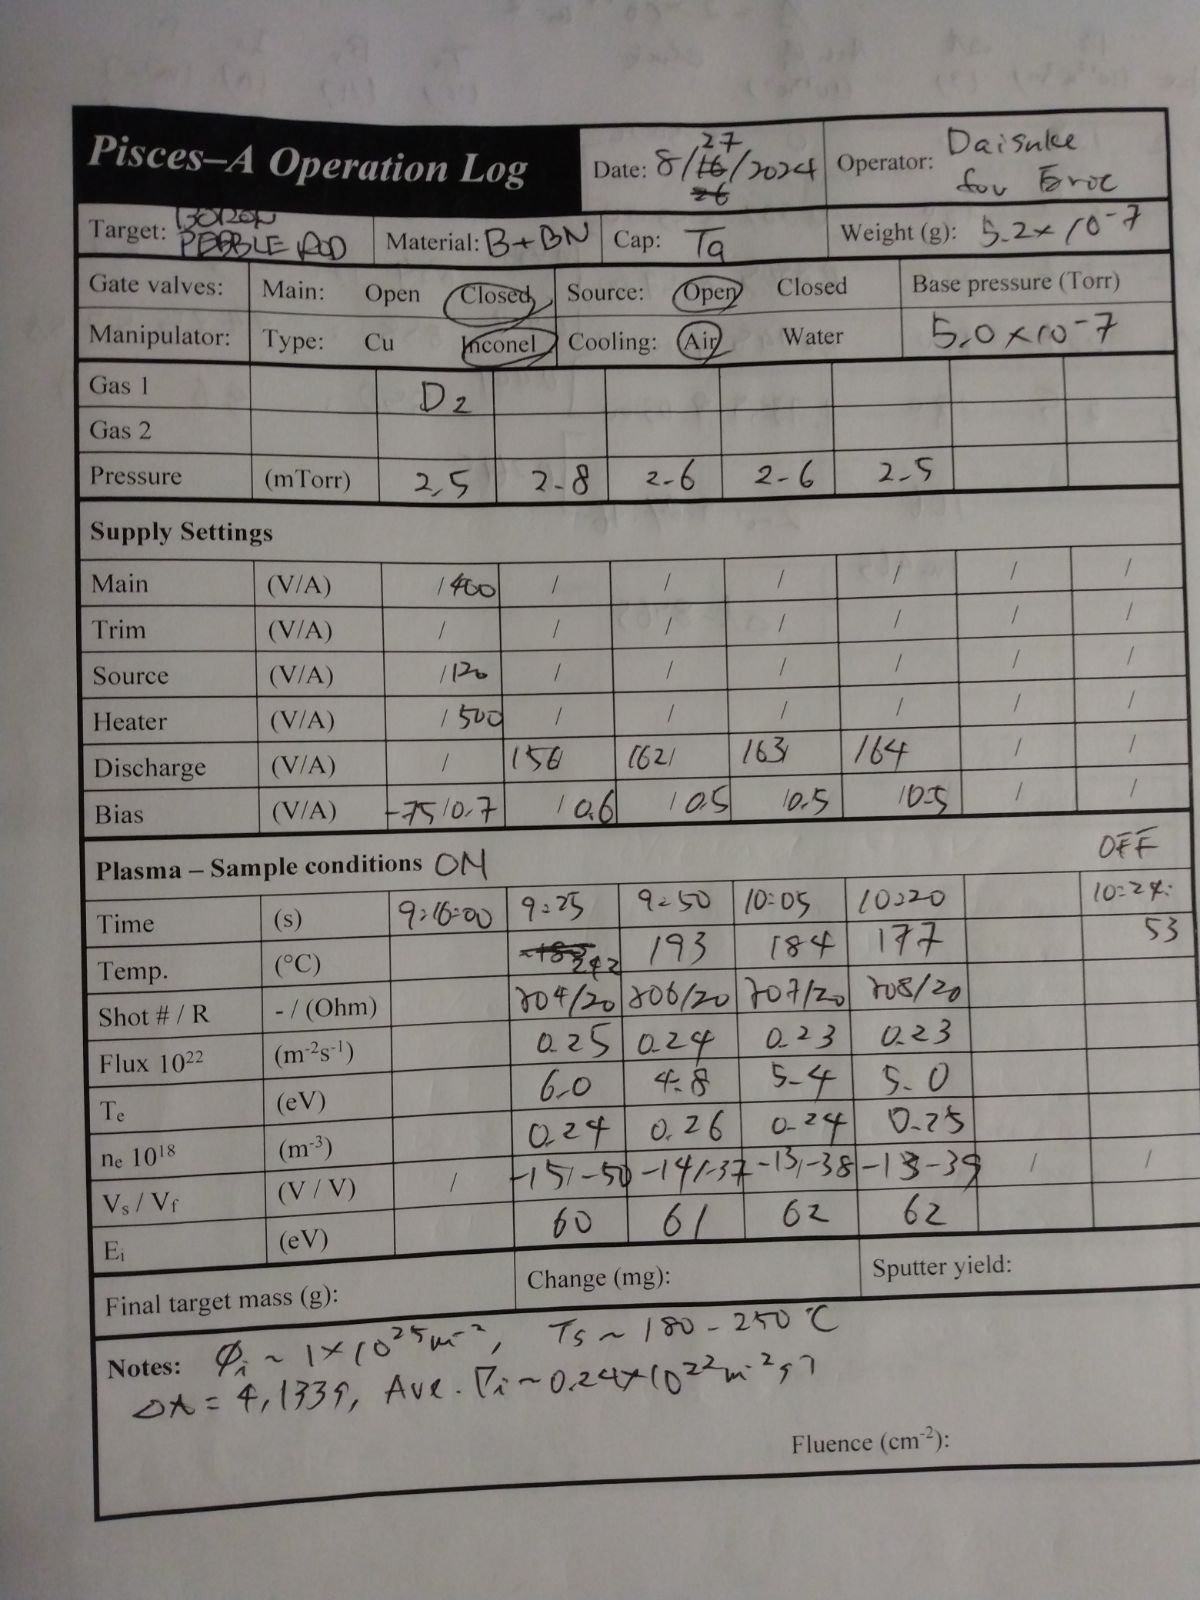 Pisces–A Operation Log
Date: 8/16/2024 27 26
Operator: Daisuke for
Target: BORON PEBBLE ROD
Material: B+BN
Cap: Ta
Weight (g): 5.2×10⁻⁷
Gate valves: Main: Open Closed Source: Open Closed Base pressure (Torr)
Manipulator: Type: Cu Inconel Cooling: Air Water 5.0×10⁻⁷
Gas 1 D2
Gas 2
Pressure (mTorr) 2.5 2.8 2.6 2.6 2.5
Supply Settings
Main (V/A) /400 / / / / / /
Trim (V/A) / / / / / / /
Source (V/A) /120 / / / / / /
Heater (V/A) /500 / / / / / /
Discharge (V/A) / 156/ 162/ 163/ 164 / /
Bias (V/A) -75/0.7 /0.6 /0.5 /0.5 /0.5 / /
Plasma – Sample conditions ON OFF
Time (s) 9:16:00 9:25 9:50 10:05 10:20 10:24:53
Temp. (°C) 242 193 184 177
Shot # / R - / (Ohm) 204/20 206/20 207/20 208/20
Flux 10²² (m⁻²s⁻¹) 0.25 0.24 0.23 0.23
Te (eV) 6.0 4.8 5.4 5.0
ne 10¹⁸ (m⁻³) 0.24 0.26 0.24 0.25
Vs / Vf (V / V) / -15/-50 -14/-37 -13/-38 -13-39 / /
Ei (eV) 60 61 62 62
Final target mass (g): Change (mg): Sputter yield:
Notes: Φi ~ 1×10²⁵m⁻², Ts ~ 180-250℃
Δt = 4,133s, Ave. Γi ~ 0.24×10²²m⁻²s⁻¹
Fluence (cm⁻²):